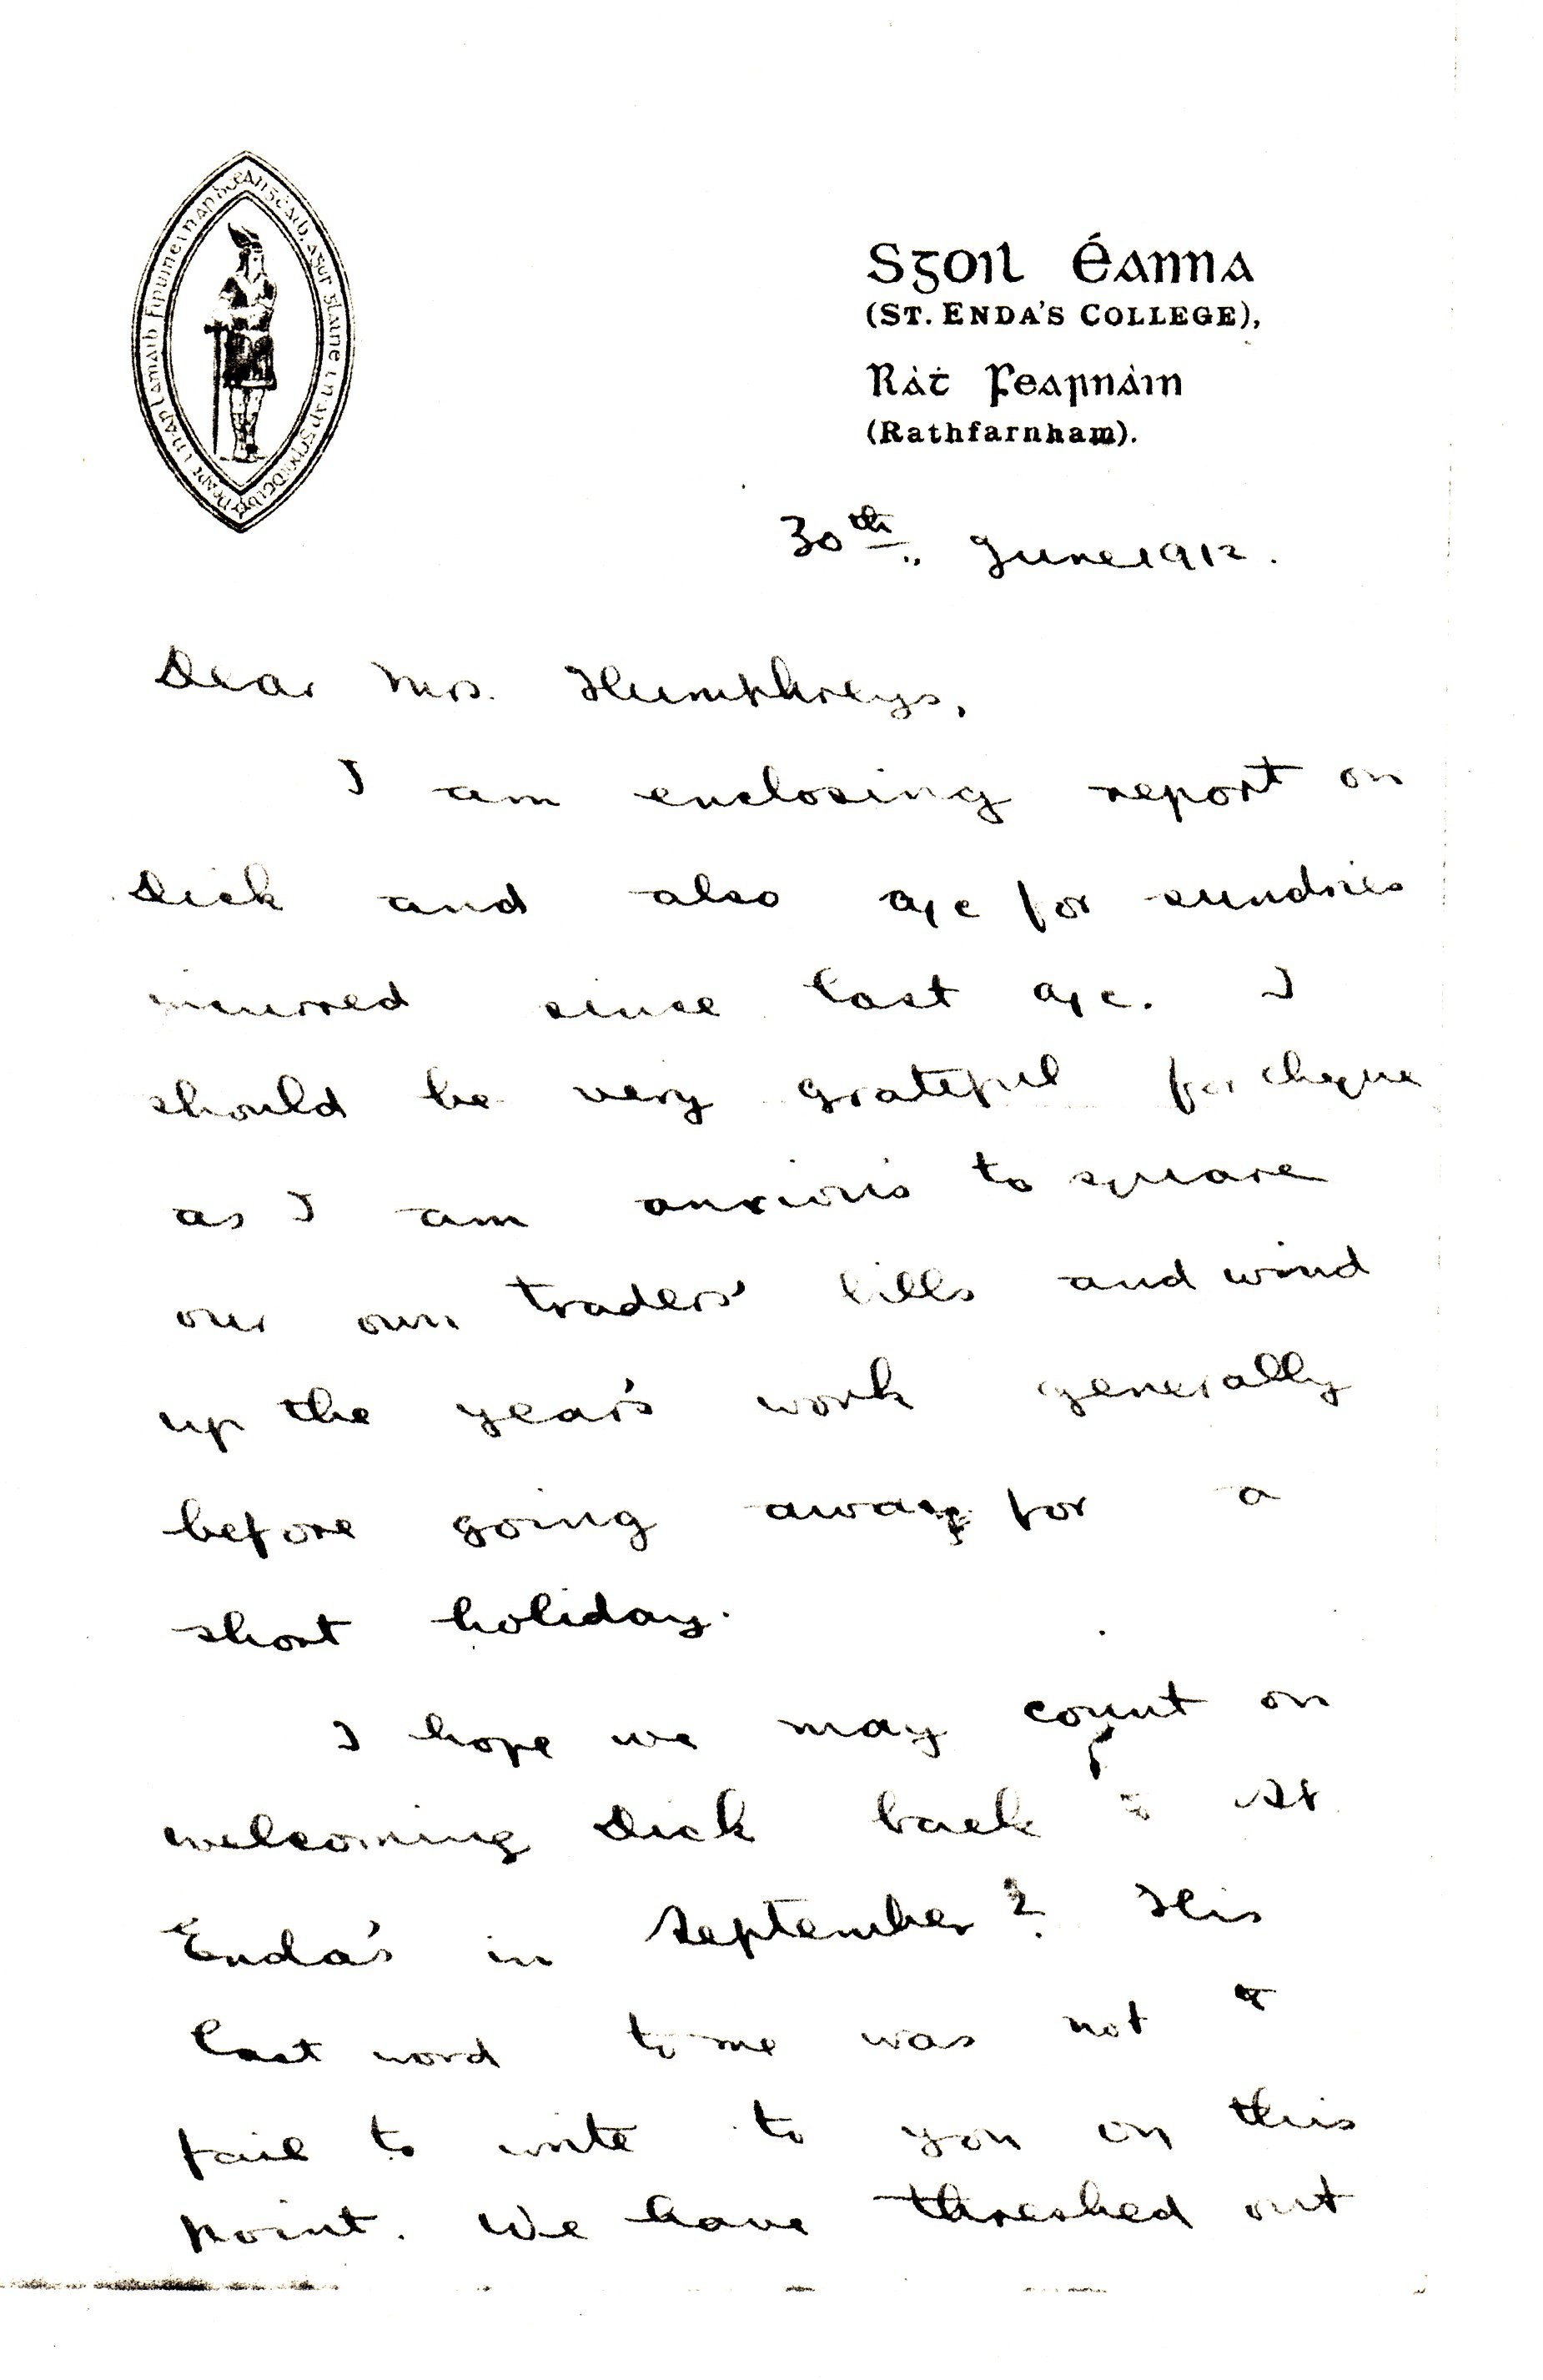 Sgoil Éanna
(St. Enda's College),
Ráṫ Fearnáin
(Rathfarnham).
30th., June 1912.
Dear Mrs. Humphreys,
I am enclosing report on
Dick and also a/c for sundries
incurred since last a/c. I
should be very grateful for cheque
as I am anxious to square
our own traders' bills and wind
up the year's work generally
before going away for a
short holiday.
I hope we may count on
welcoming Dick back to St
Enda's in September? His
last word to me was not to
fail to write to you on this
point. We have threshed out